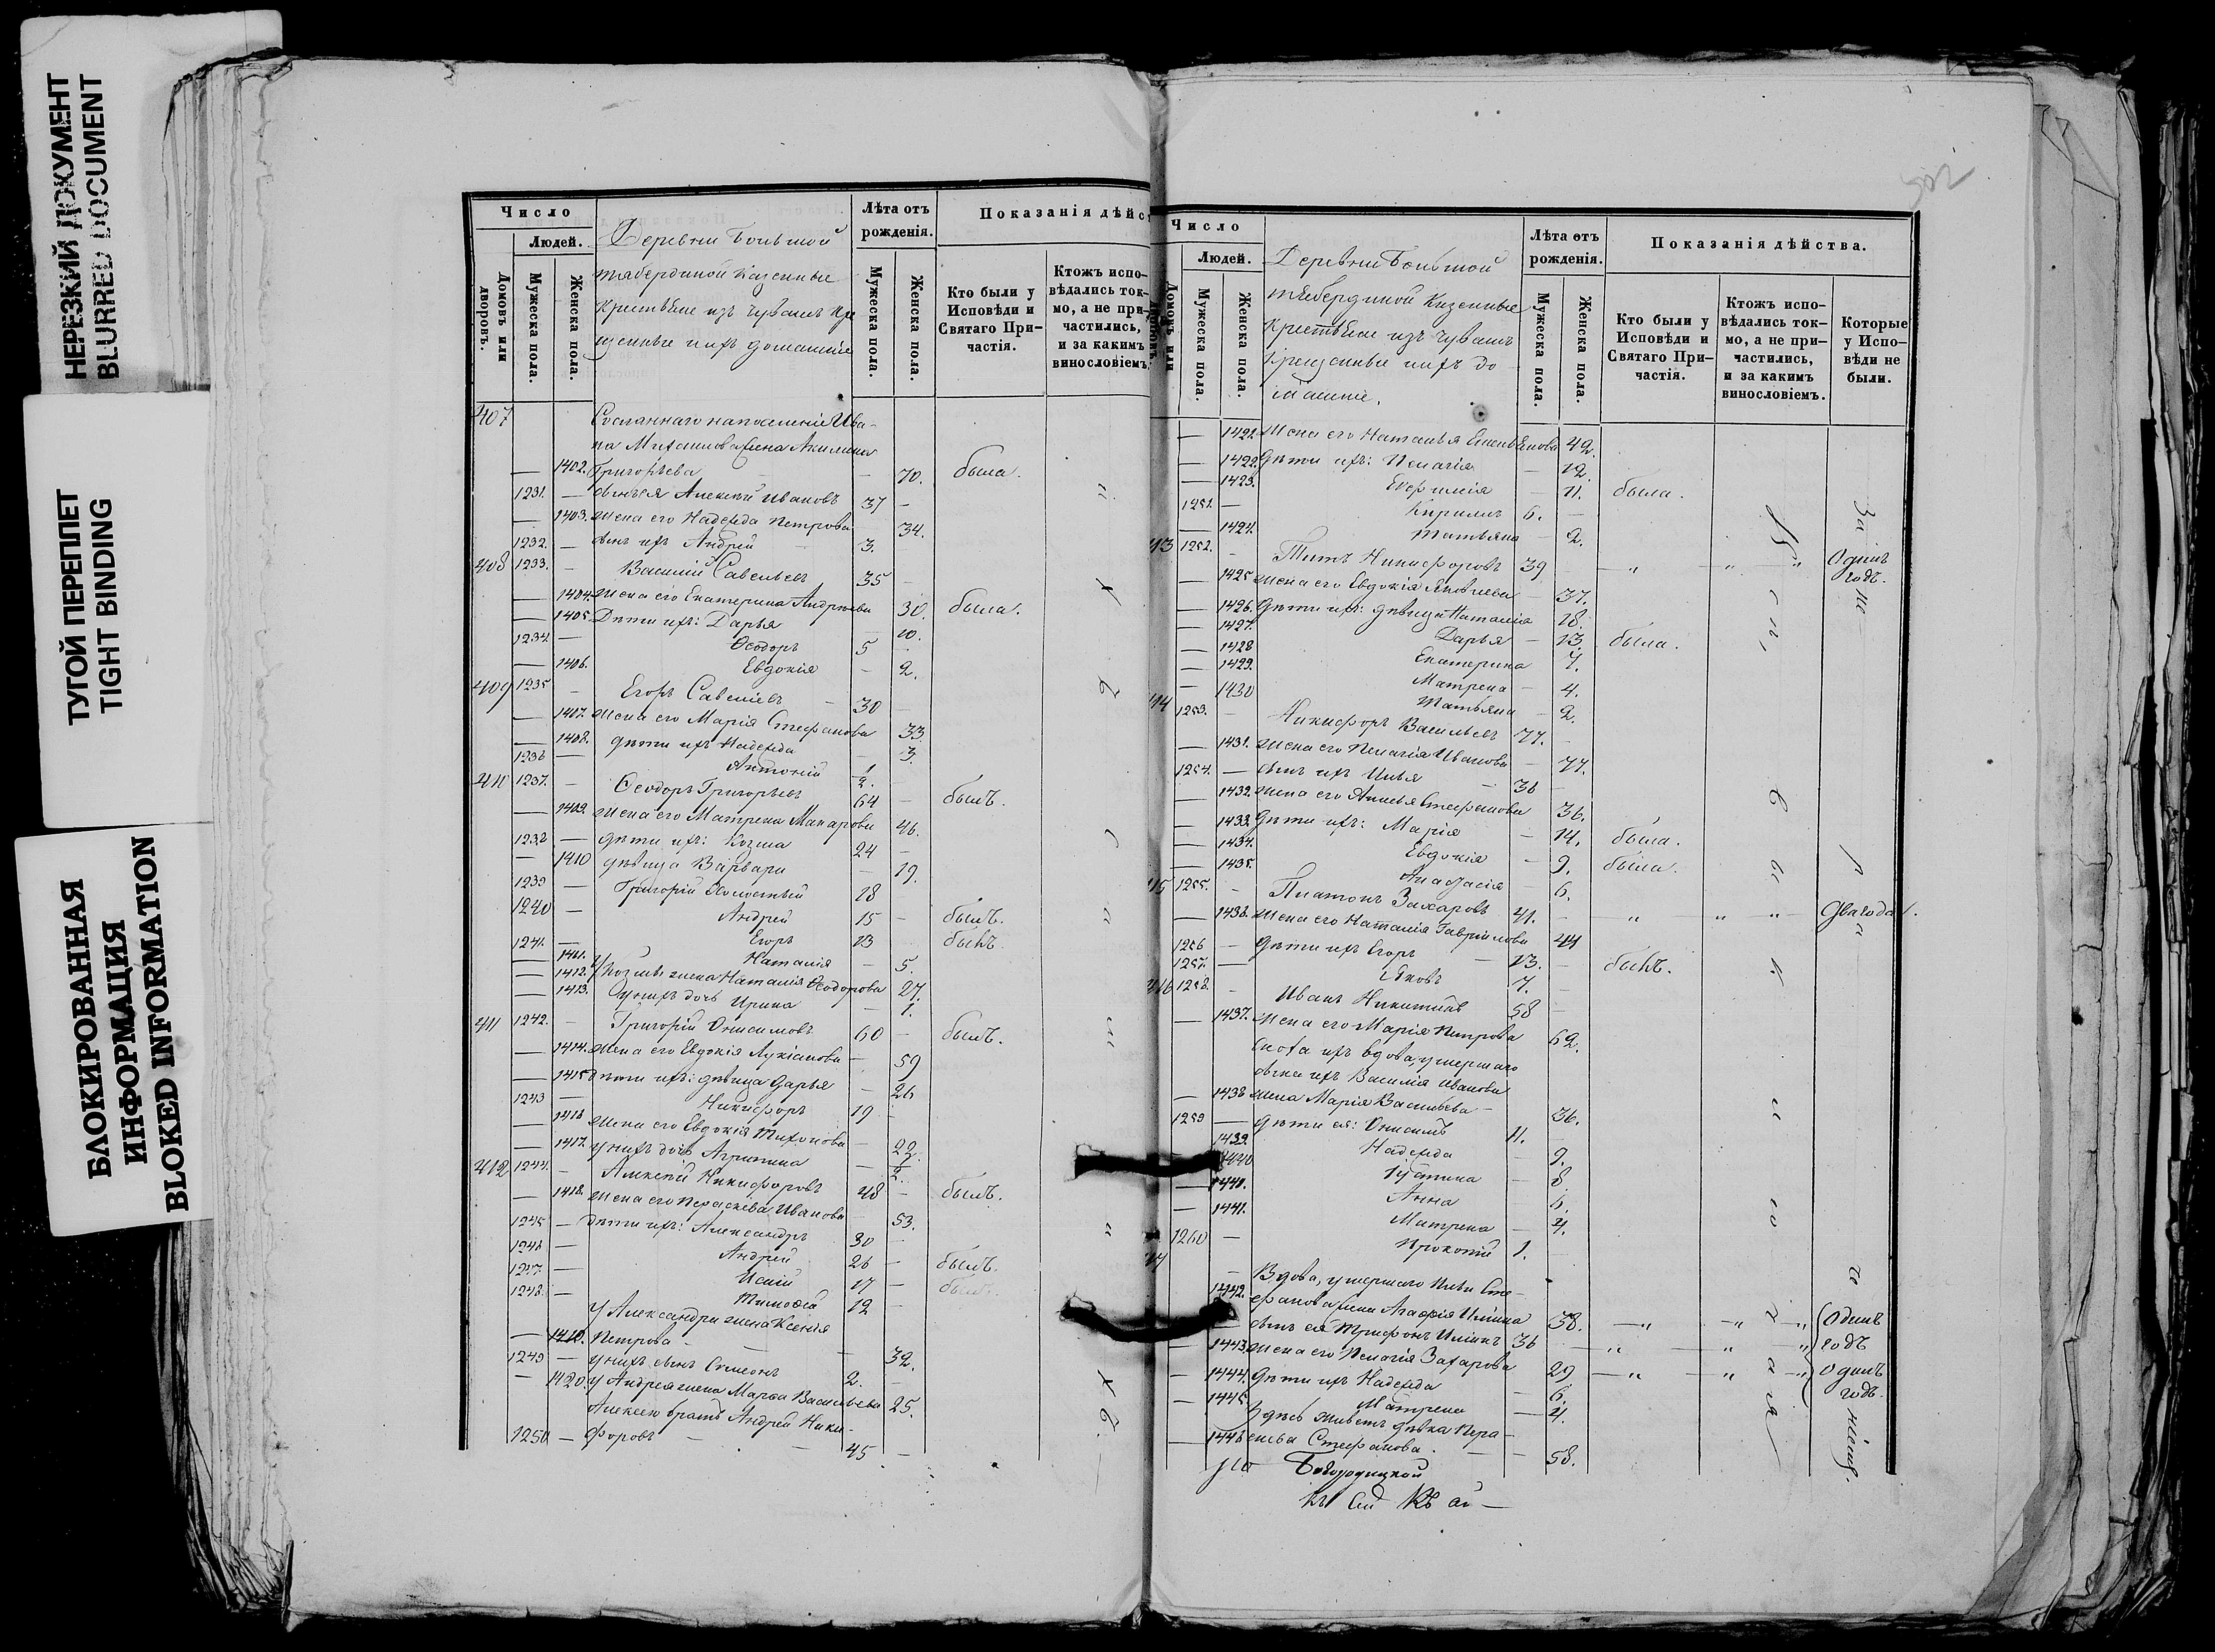 НЕРЕЗКИЙ ДОКУМЕНТ
BLURRED DOCUMENT
ТУГОЙ ПЕРЕПЛЕТ
TIGHT BINDING
БЛОКИРОВАННАЯ
ИНФОРМАЦИЯ
BLOKED INFORMATION
Число
Людей.
Домовъ или дворовъ.
Мужеска пола.
Женска пола.
Деревни Большой
Казенные
изъ Чувашъ
ихъ домашніе
Лѣта отъ рожденія.
Мужеска пола.
Женска пола.
Показанія дѣйст
Кто были у Исповѣди и Святаго Причастія.
Ктожъ исповѣдались токмо, а не причастились, и за какимъ винословіемъ.
407
Сосланнаго на поселеніе Ива-
на Михаилова жена Акилина
1402. Григорьева 70. была.
1231. Алексѣй Ивановъ 37
1403. Жена его Надежда Петрова 34.
1232. сынъ ихъ Андрей 3.
408 1233. Василій Савельевъ 35
1404. Жена его Екатерина Андреева 30. была.
1405 Дѣти ихъ: Дарья 10.
1234. Ѳеодоръ 5
1406. Евдокія 2.
409 1235 Егоръ Савельевъ 30
1407. Жена его Марія Стефанова 33.
1408. дѣти ихъ Надежда 3.
1236 Антоній 1/2.
410 1237. Ѳеодоръ Григорьевъ 64 былъ.
1409. Жена его Матрена Макарова 46.
1238 дѣти ихъ: Козма 24
1410 дѣвица Варвара 19.
1239 Григорій Холостый 18
1240 Андрей 15 былъ.
1241. Егоръ 13 былъ.
1411. Наталія 5.
1412. У Козмы жена Наталія Ѳеодорова 27.
1413. у нихъ дочь Ирина 1.
411 1242. Григорій Онисимовъ 60 былъ.
1414. Жена его Евдокія Лукіанова 59
1415 дѣти ихъ: дѣвица Дарья 26
1243 Никифоръ 19
1416 Жена его Евдокія Тихонова 22.
1417. у нихъ дочь Агрипина 1/2.
412 1244. Алексѣй Никифоровъ 48 былъ.
1418. Жена его Параскева Иванова 53.
1245 дѣти ихъ: Александръ 30
1246 Андрей 26 былъ.
1247. 17 былъ.
1248. Тимоѳей 12
У Александра жена Ксенія
1419. Петрова 32.
1249 у нихъ сынъ Симеонъ 2.
1420. У Андрея жена Марѳа Васильева 25.
Алексею братъ Андрей Ники-
1250 форовъ 45
502
Число
Людей.
Домовъ или дворовъ.
Мужеска пола.
Женска пола.
Деревни Большой
Казенные
изъ Чувашъ
Крещеные ихъ до-
машніе.
Лѣта отъ рожденія.
Мужеска пола.
Женска пола.
Показанія дѣйства.
Кто были у Исповѣди и Святаго Причастія.
Ктожъ исповѣдались токмо, а не причастились, и за какимъ винословіемъ.
Которые у Исповѣди не были.
1421. Жена его Наталья 42.
1422. Дѣти ихъ: Пелагія 12.
1423. Евфимія 11. была.
1251. Кирилъ 6.
1424. Татьяна 2.
1252. Титъ Никифоровъ 39 Одинъ годъ.
1425 Жена его Евдокія Яковлева 37.
1426. Дѣти ихъ: дѣвица Наталія 18.
1427. Дарья 13. была.
1428 Екатерина 7.
1429. Матрена 4.
1430 Татьяна 2.
1253. Никифоръ Васильевъ 77.
1431. Жена его Пелагія Иванова 77.
1254. сынъ ихъ Илья 36
1432. Жена его Стефанова 36.
1433. Дѣти ихъ: Марія 14. была.
1434. Евдокія 9. была.
1435. Анастасія 6.
1255. Платонъ Захаровъ 41. два года
1436. Жена его Наталія Гаврилова 44
1256 дѣти ихъ Егоръ 13. былъ.
1257. Яковъ 7.
1258. Иванъ Никитинъ 58
1437. Жена его Марія Петрова 62.
Сноха ихъ вдова, умершаго
сына ихъ Василія Иванова
1438 жена Марія Васильева 36.
1259 дѣти ея: Онисимъ 11.
1439. Надежда 9.
1440 8
1440. Анна 6.
1441. Матрена 4.
1260 Прокопій 1.
Вдова, умершаго Ильи Сте-
1442. фанова жена Агафія Ильина 38. Одинъ
сынъ ея Трифонъ Ильинъ 36 годъ
1443. Жена его Пелагія Захарова 29 Одинъ
1444. Дѣти ихъ Надежда 6. годъ.
1445. Матрена 4.
Здѣсь живетъ дѣвка Пара-
1446 скева Стефанова. 58.
Богородицкой